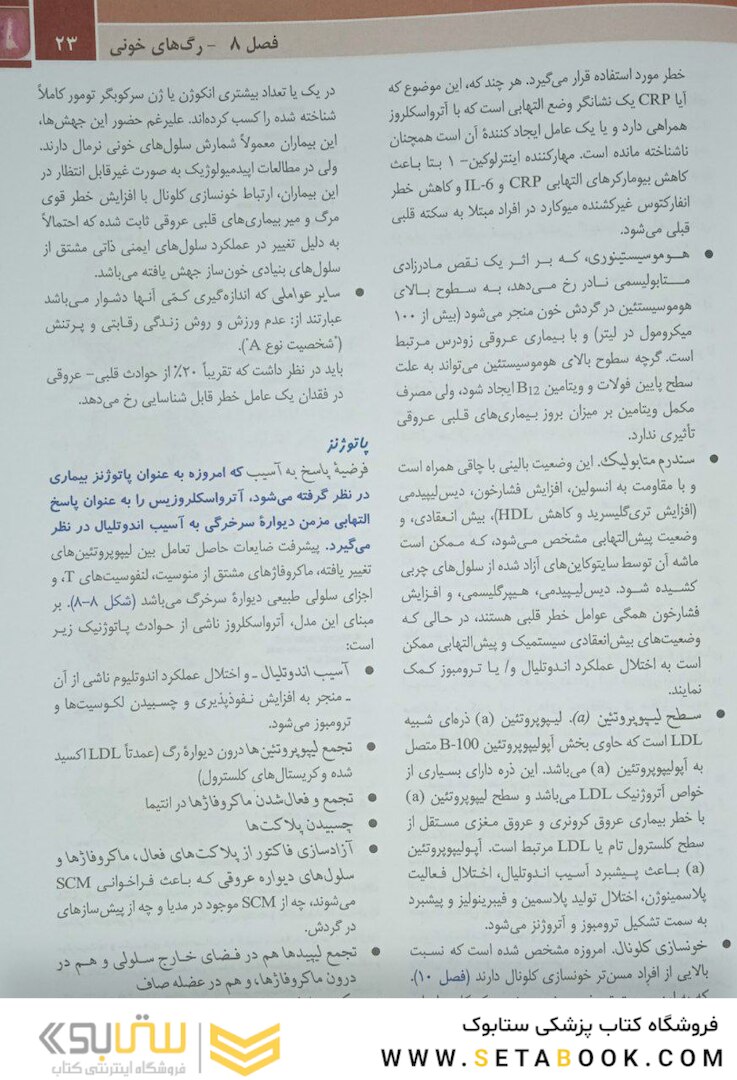 فصل ۸ - رگ‌های خونی
۲۳
خطر مورد استفاده قرار می‌گیرد. هر چند که، این موضوع که
آیا CRP یک نشانگر وضع التهابی است که با آترواسکلروز
همراهی دارد و یا یک عامل ایجاد کنندهٔ آن است همچنان
ناشناخته مانده است. مهارکننده اینترلوکین- ۱ بتا باعث
کاهش بیومارکرهای التهابی CRP و IL-6 و کاهش خطر
انفارکتوس غیرکشنده میوکارد در افراد مبتلا به سکته قلبی
قبلی می‌شود.
● هـومـوسیستینوری، کـه بـر اثـر یـک نـقص مـادرزادی
مـتابولیسمی نـادر رخ مـی‌دهد، بـه سـطوح بـالای
هوموسیستئین در گردش خون منجر می‌شود (بیش از ۱۰۰
میکرومول در لیتر) و با بیماری عروقی زودرس مـرتبط
است. گرچه سطوح بالای هوموسیستئین می‌تواند به علت
سطح پایین فولات و ویتامین B12 ایجاد شود، ولی مصرف
مکمل ویتامین بر میزان بروز بـیماری‌های قـلبی عـروقی
تأثیری ندارد.
● سندرم متابولیک. این وضعیت بالینی با چاقی همراه است
و با مقاومت به انسولین، افزایش فشارخون، دیس‌لیپیدمی
(افزایش تری‌گلیسرید و کاهش HDL)، بیش انـعقادی، و
وضعیت پیش‌التهابی مشخص مـی‌شود، کـه مـمکن است
ماشه آن توسط سایتوکاین‌های آزاد شده از سلول‌های چربی
کشـیده شـود. دیس‌لیـپیدمی، هـیپرگلیسمی، و افـزایش
فشارخون همگی عوامل خطر قلبی هستند، در حالی کـه
وضعیت‌های بیش‌انعقادی سیستمیک و پیش‌التهابی ممکن
است به اختلال عملکرد انـدوتلیال و/ یـا تـرومبوز کـمک
نمایند.
● سـطح لیـپوپروتئین (a). لیـپوپروتئین (a) ذره‌ای شـبیه
LDL است که حاوی بخش آپولیپوپروتئین B-100 متصل
به آپولیپوپروتئین (a) می‌باشد. این ذره دارای بسیاری از
خواص آتروژنیک LDL می‌باشد و سطح لیپوپروتئین (a)
با خطر بیماری عروق کرونری و عروق مـغزی مسـتقل از
سطح کلسترول تام یا LDL مرتبط است. آپـولیپوپروتئین
(a) بـاعث پـیشبرد آسیب انـدوتلیال، اخـتلال فـعالیت
پلاسمینوژن، اختلال تولید پلاسمین و فیبرینولیز و پیشبرد
به سمت تشکیل ترومبوز و آتروژنز می‌شود.
● خونسازی کلونال. امروزه مشخص شده است که نسـبت
بالایی از افراد مسن‌تر خونسازی کلونال دارند (فصل ۱۰).
در یک یا تعداد بیشتری انکوژن یا ژن سرکوبگر تومور کاملاً
شناخته شده را کسب کرده‌اند. علیرغم حضور این جهش‌ها،
این بیماران معمولاً شمارش سلول‌های خونی نرمال دارند.
ولی در مطالعات اپیدمیولوژیک به صورت غیرقابل انتظار در
این بیماران، ارتباط خونسازی کلونال با افزایش خطر قوی
مرگ و میر بیماری‌های قلبی عروقی ثابت شده که احتمالاً
به دلیل تغییر در عملکرد سلول‌های ایمنی ذاتی مشتق از
سلول‌های بنیادی خون‌ساز جهش یافته می‌باشد.
● سایر عواملی که اندازه‌گیری کمّی آنـها دشوار مـی‌باشد
عبارتند از: عدم ورزش و روش زندگی رقابتی و پرتنش
("شخصیت نوع A").
باید در نظر داشت که تقریباً ۲۰٪ از حوادث قلبی- عروقی
در فقدان یک عامل خطر قابل شناسایی رخ می‌دهد.
پاتوژنز
فرضیهٔ پاسخ به آسیب که امروزه به عنوان پاتوژنز بیماری
در نظر گرفته می‌شود، آترواسکلروزیس را به عنوان پاسخ
التهابی مزمن دیوارهٔ سرخرگی به آسیب اندوتلیال در نظر
می‌گیرد. پیشرفت ضایعات حاصل تعامل بین لیپوپروتئین‌های
تغییر یافته، ماکروفاژهای مشتق از منوسیت، لنفوسیت‌های T، و
اجزای سلولی طبیعی دیوارهٔ سرخرگ می‌باشد (شکل ۸-۸). بر
مبنای این مدل، آترواسکلروز ناشی از حوادث پـاتوژنیک زیـر
است:
● آسیب اندوتلیال ـ و اختلال عملکرد اندوتلیوم ناشی از آن
ـ منجر به افزایش نـفوذپذیری و چسبیدن لکـوسیت‌ها و
ترومبوز می‌شود.
● تجمع لیپوپروتئین‌ها درون دیوارهٔ رگ (عمدتاً LDL اکسید
شده و کریستال‌های کلسترول)
● تجمع و فعال‌شدن ماکروفاژها در انتیما
● چسبیدن پلاکت‌ها
● آزادسازی فاکتور از پلاکت‌های فعال، ماکروفاژها و
سلول‌های دیواره عروقی کـه بـاعث فـراخـوانی SCM
می‌شوند، چه از SCM موجود در مدیا و چه از پیش‌سازهای
در گردش.
● تجمع لیپیدها هم در فـضای خـارج سـلولی و هـم در
درون ماکروفاژها، و هم در عضله صاف
ستابوک
فروشگاه اینترنتی کتاب
فروشگاه کتاب پزشکی ستابوک
WWW.SETABOOK.COM